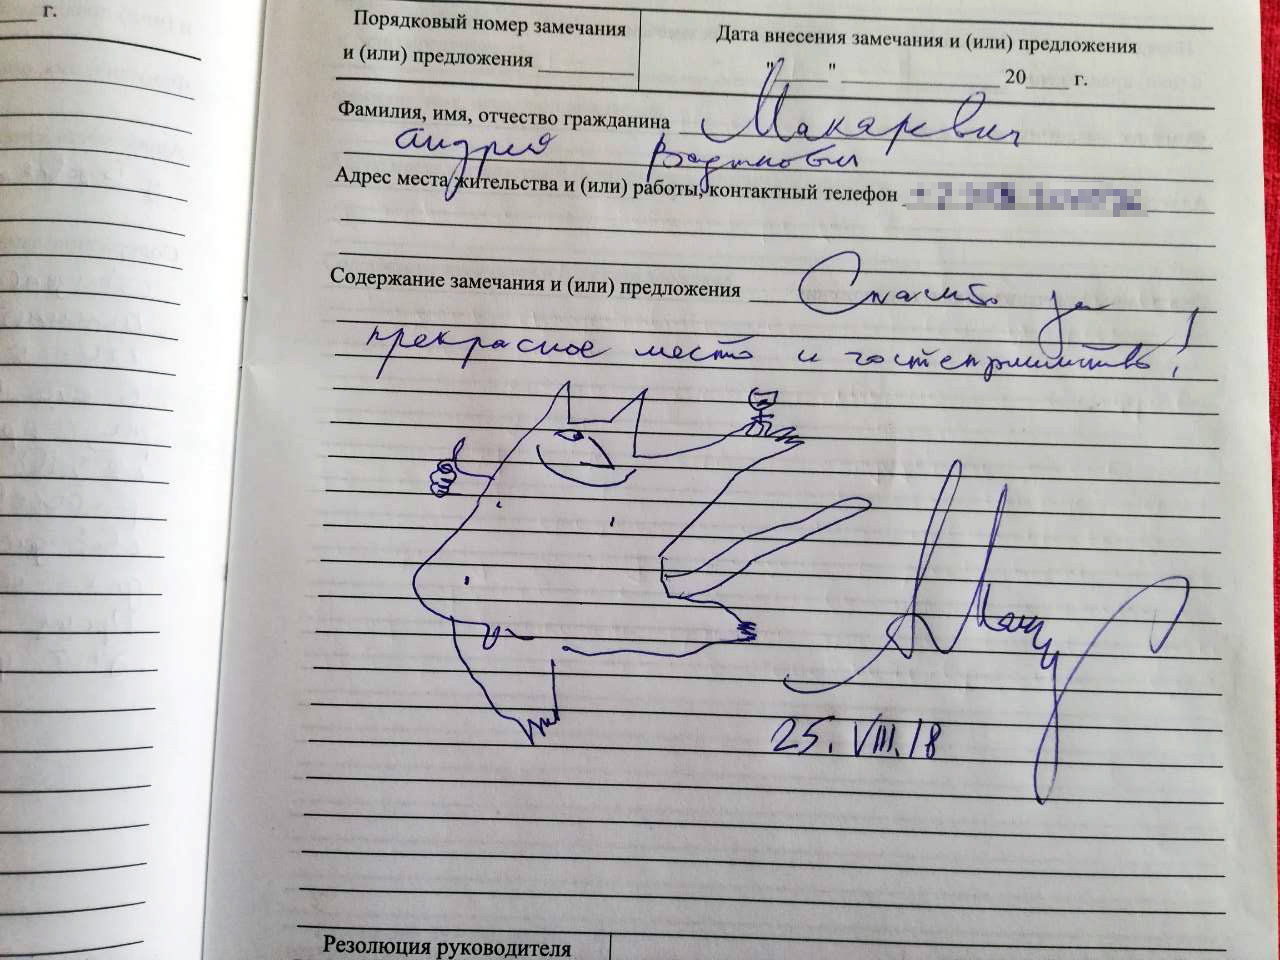 г.
Порядковый номер замечания
и (или) предложения
Дата внесения замечания и (или) предложения
" " 20 г.
Фамилия, имя, отчество гражданина Макаревич
Андрей
Адрес места жительства и (или) работы, контактный телефон
Содержание замечания и (или) предложения Спасибо за
прекрасное место и гостеприимство!
25. VIII. 18
Резолюция руководителя